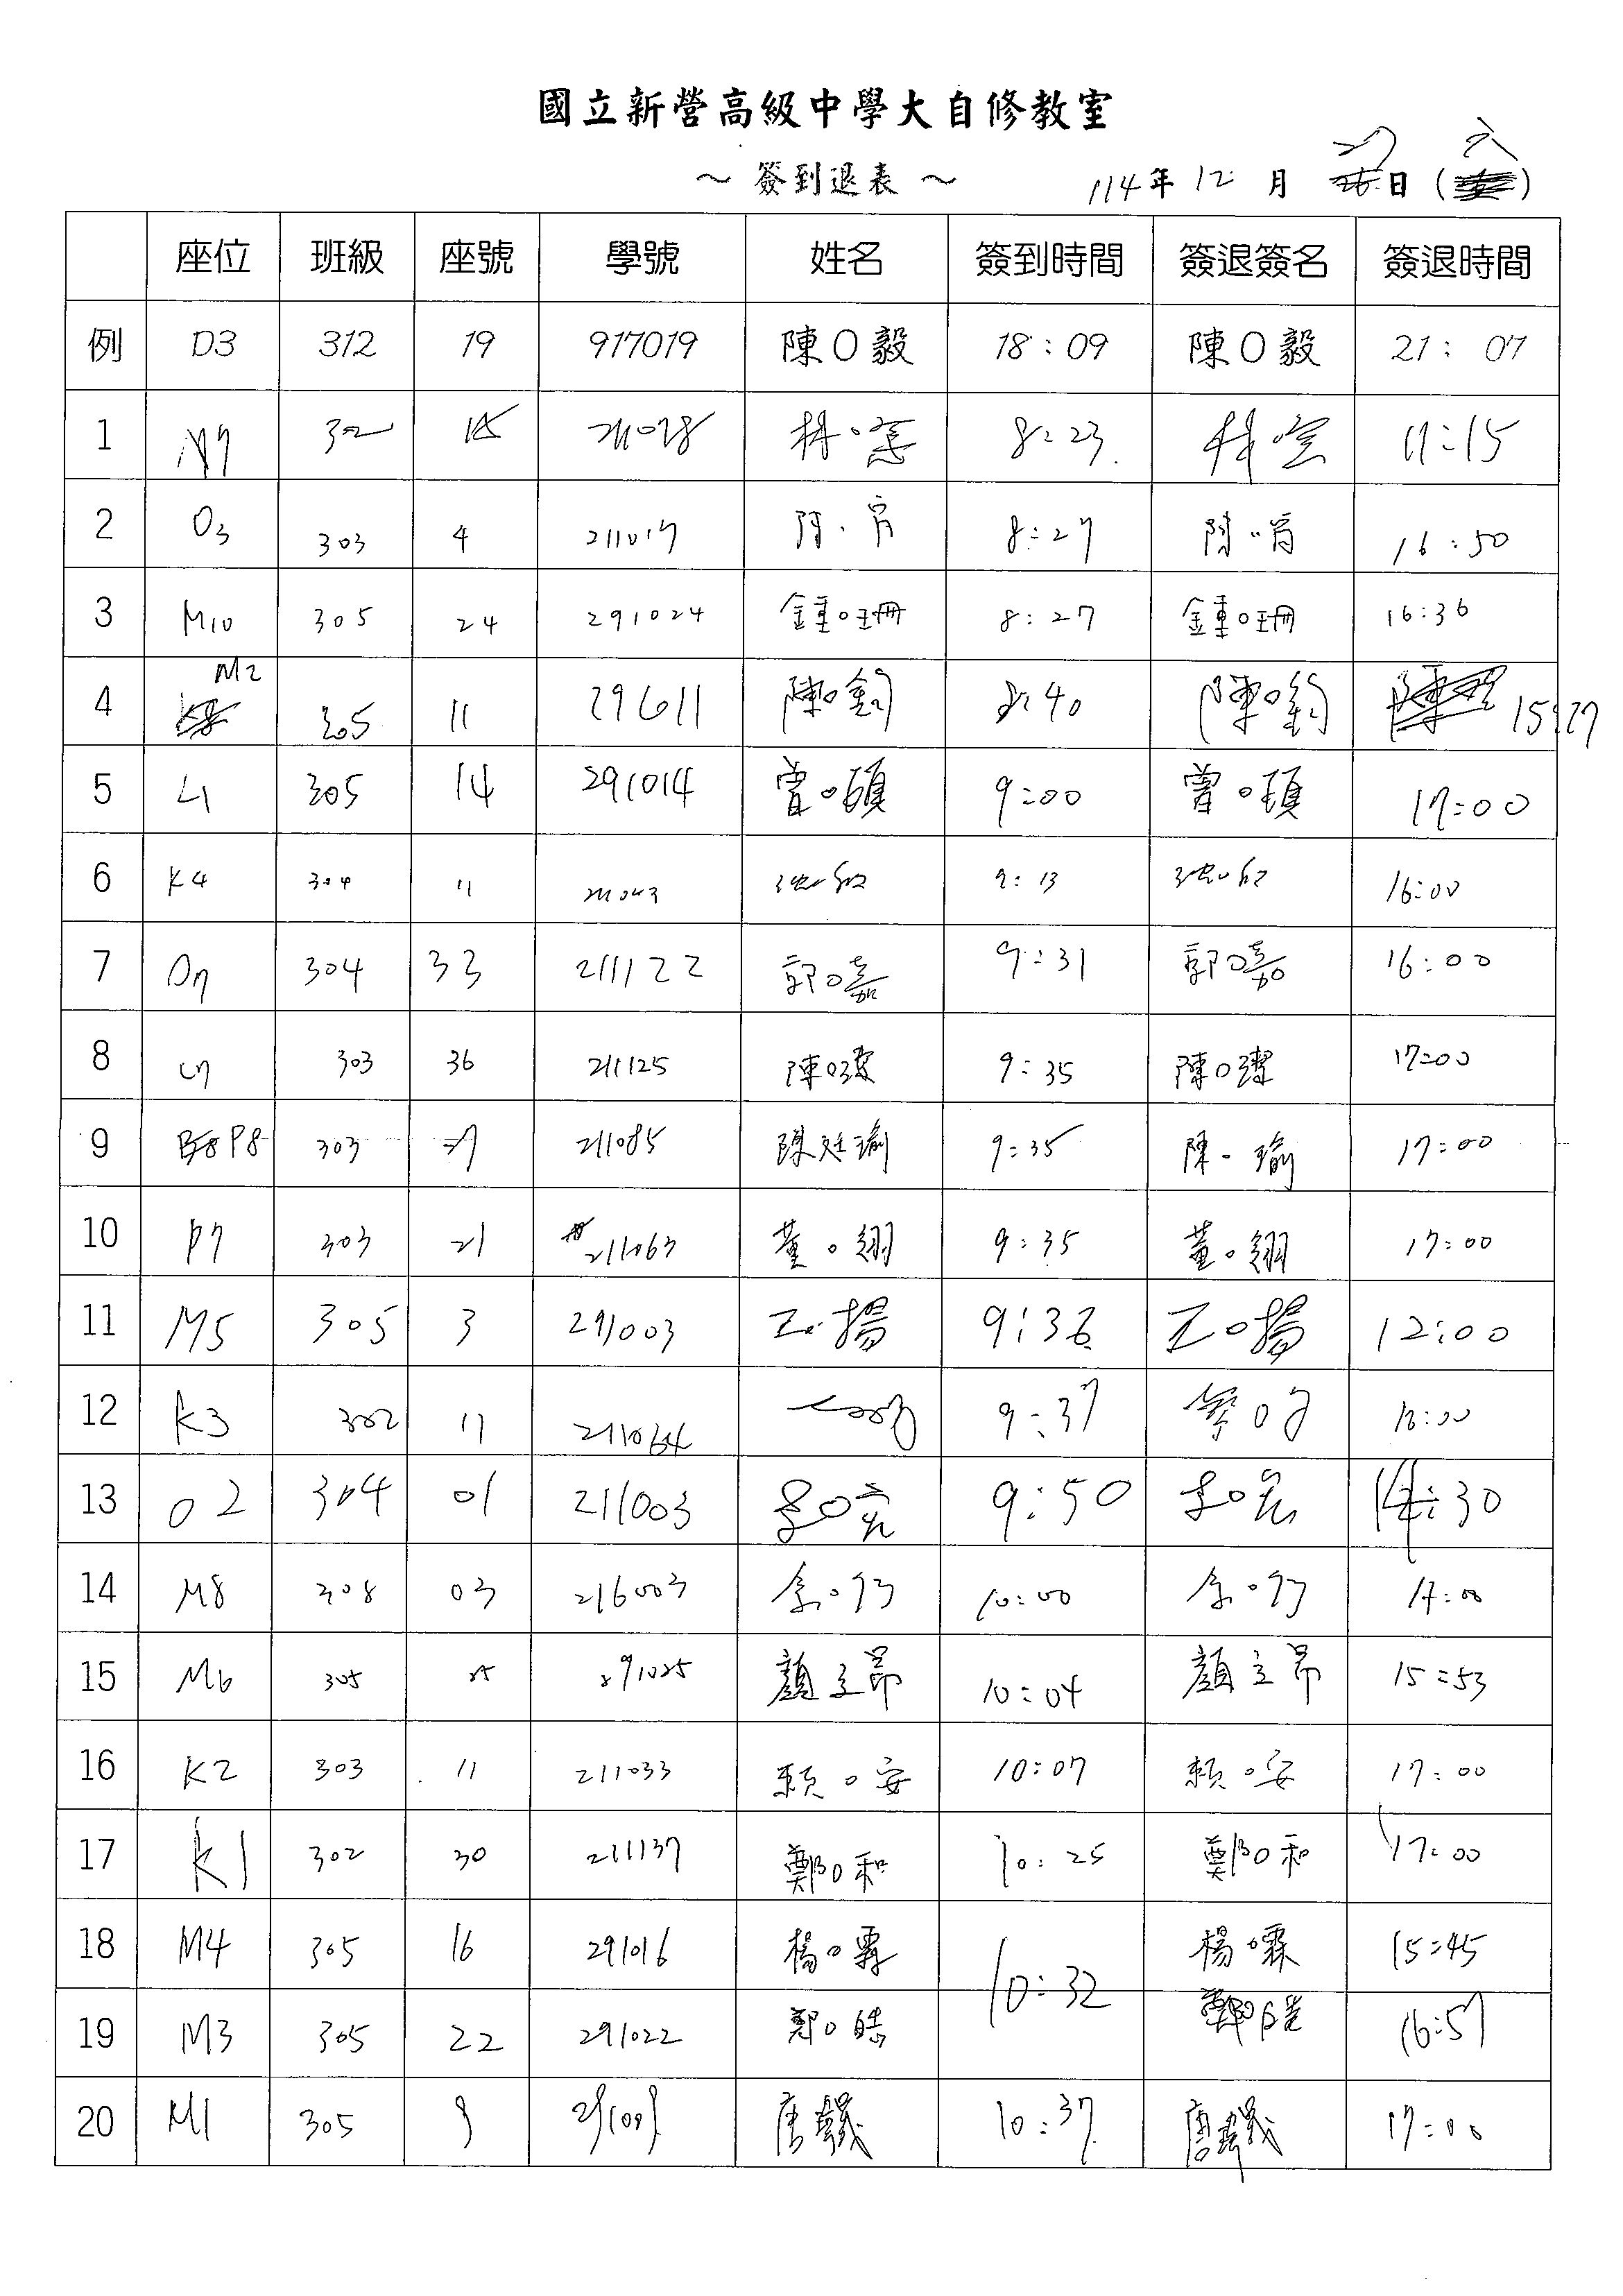 國立新營高級中學大自修教室
～ 簽到退表 ～ 114年 12 月 27日 (六)
座位 班級 座號 學號 姓名 簽到時間 簽退簽名 簽退時間
例 D3 312 19 917019 陳O毅 18:09 陳O毅 21:07
1 N7 302 15 8:23 11:15
2 O3 303 4 211017 8:27 16:50
3 M10 305 24 291024 鍾O珊 8:27 鍾O珊 16:36
4 M2 305 11 29611 陳O鈞 8:40 陳O鈞 15:27
5 L1 305 14 291014 曾O頤 9:00 曾O頤 17:00
6 K4 304 11 9:13 16:00
7 O7 304 33 211122 郭O嘉 9:31 郭O嘉 16:00
8 303 36 211125 陳O潔 9:35 陳O潔 17:00
9 P8 303 27 211085 陳廷瑜 9:35 陳O瑜 17:00
10 P7 303 21 211063 董O翎 9:35 董O翎 17:00
11 M5 305 3 291003 王O揚 9:36 王O揚 12:00
12 K3 302 11 211064 9:37
13 O2 304 01 211003 9:50 14:30
14 M8 308 03 216003 10:00 17:00
15 M6 305 25 291025 顏立昂 10:04 顏立昂 15:53
16 K2 303 11 211033 賴O安 10:07 賴O安 17:00
17 K1 302 30 211137 鄭O和 10:25 鄭O和 17:00
18 M4 305 16 291016 楊O霖 10:32 楊O霖 15:45
19 M3 305 22 291022 鄭O皓 鄭O皓 16:57
20 M1 305 9 291009 唐O義 10:37 唐O義 17:00